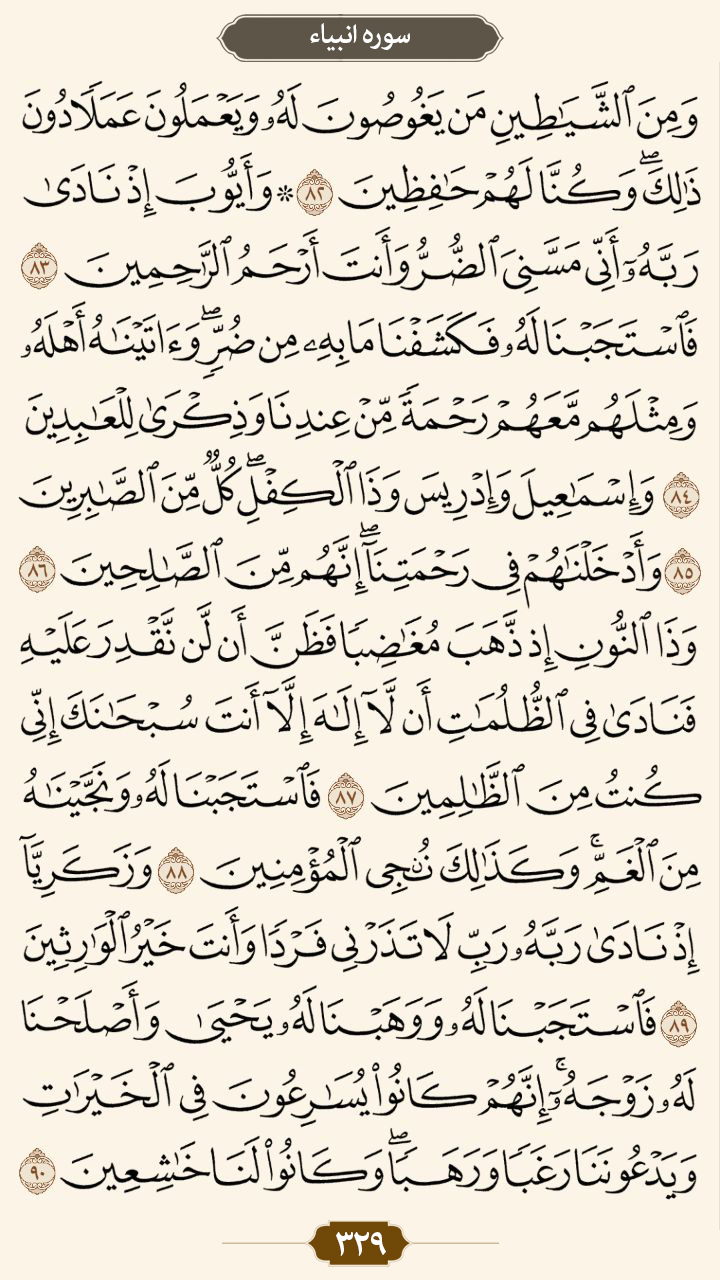 سوره انبیاء
وَمِنَ ٱلشَّيَٰطِينِ مَن يَغُوصُونَ لَهُۥ وَيَعۡمَلُونَ عَمَلٗا دُونَ
ذَٰلِكَۖ وَكُنَّا لَهُمۡ حَٰفِظِينَ ٨٢ ۞ وَأَيُّوبَ إِذۡ نَادَىٰ
رَبَّهُۥٓ أَنِّي مَسَّنِيَ ٱلضُّرُّ وَأَنتَ أَرۡحَمُ ٱلرَّٰحِمِينَ ٨٣
فَٱسۡتَجَبۡنَا لَهُۥ فَكَشَفۡنَا مَا بِهِۦ مِن ضُرّٖۖ وَءَاتَيۡنَٰهُ أَهۡلَهُۥ
وَمِثۡلَهُم مَّعَهُمۡ رَحۡمَةٗ مِّنۡ عِندِنَا وَذِكۡرَىٰ لِلۡعَٰبِدِينَ
٨٤ وَإِسۡمَٰعِيلَ وَإِدۡرِيسَ وَذَا ٱلۡكِفۡلِۖ كُلّٞ مِّنَ ٱلصَّٰبِرِينَ
٨٥ وَأَدۡخَلۡنَٰهُمۡ فِي رَحۡمَتِنَآۖ إِنَّهُم مِّنَ ٱلصَّٰلِحِينَ ٨٦
وَذَا ٱلنُّونِ إِذ ذَّهَبَ مُغَٰضِبٗا فَظَنَّ أَن لَّن نَّقۡدِرَ عَلَيۡهِ
فَنَادَىٰ فِي ٱلظُّلُمَٰتِ أَن لَّآ إِلَٰهَ إِلَّآ أَنتَ سُبۡحَٰنَكَ إِنِّي
كُنتُ مِنَ ٱلظَّٰلِمِينَ ٨٧ فَٱسۡتَجَبۡنَا لَهُۥ وَنَجَّيۡنَٰهُ
مِنَ ٱلۡغَمِّۚ وَكَذَٰلِكَ نُـۨجِي ٱلۡمُؤۡمِنِينَ ٨٨ وَزَكَرِيَّآ
إِذۡ نَادَىٰ رَبَّهُۥ رَبِّ لَا تَذَرۡنِي فَرۡدٗا وَأَنتَ خَيۡرُ ٱلۡوَٰرِثِينَ
٨٩ فَٱسۡتَجَبۡنَا لَهُۥ وَوَهَبۡنَا لَهُۥ يَحۡيَىٰ وَأَصۡلَحۡنَا
لَهُۥ زَوۡجَهُۥٓۚ إِنَّهُمۡ كَانُواْ يُسَٰرِعُونَ فِي ٱلۡخَيۡرَٰتِ
وَيَدۡعُونَنَا رَغَبٗا وَرَهَبٗاۖ وَكَانُواْ لَنَا خَٰشِعِينَ ٩٠
٣٢٩